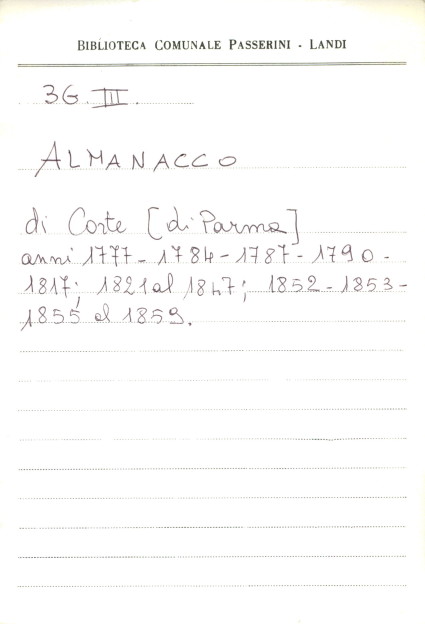 BIBLIOTECA COMUNALE PASSERINI - LANDI
3G. III.
ALMANACCO
di Corte [di Parma]
anni 1777 - 1784 - 1787 - 1790 -
1817; 1821 al 1847; 1852 - 1853 -
1855 al 1859.